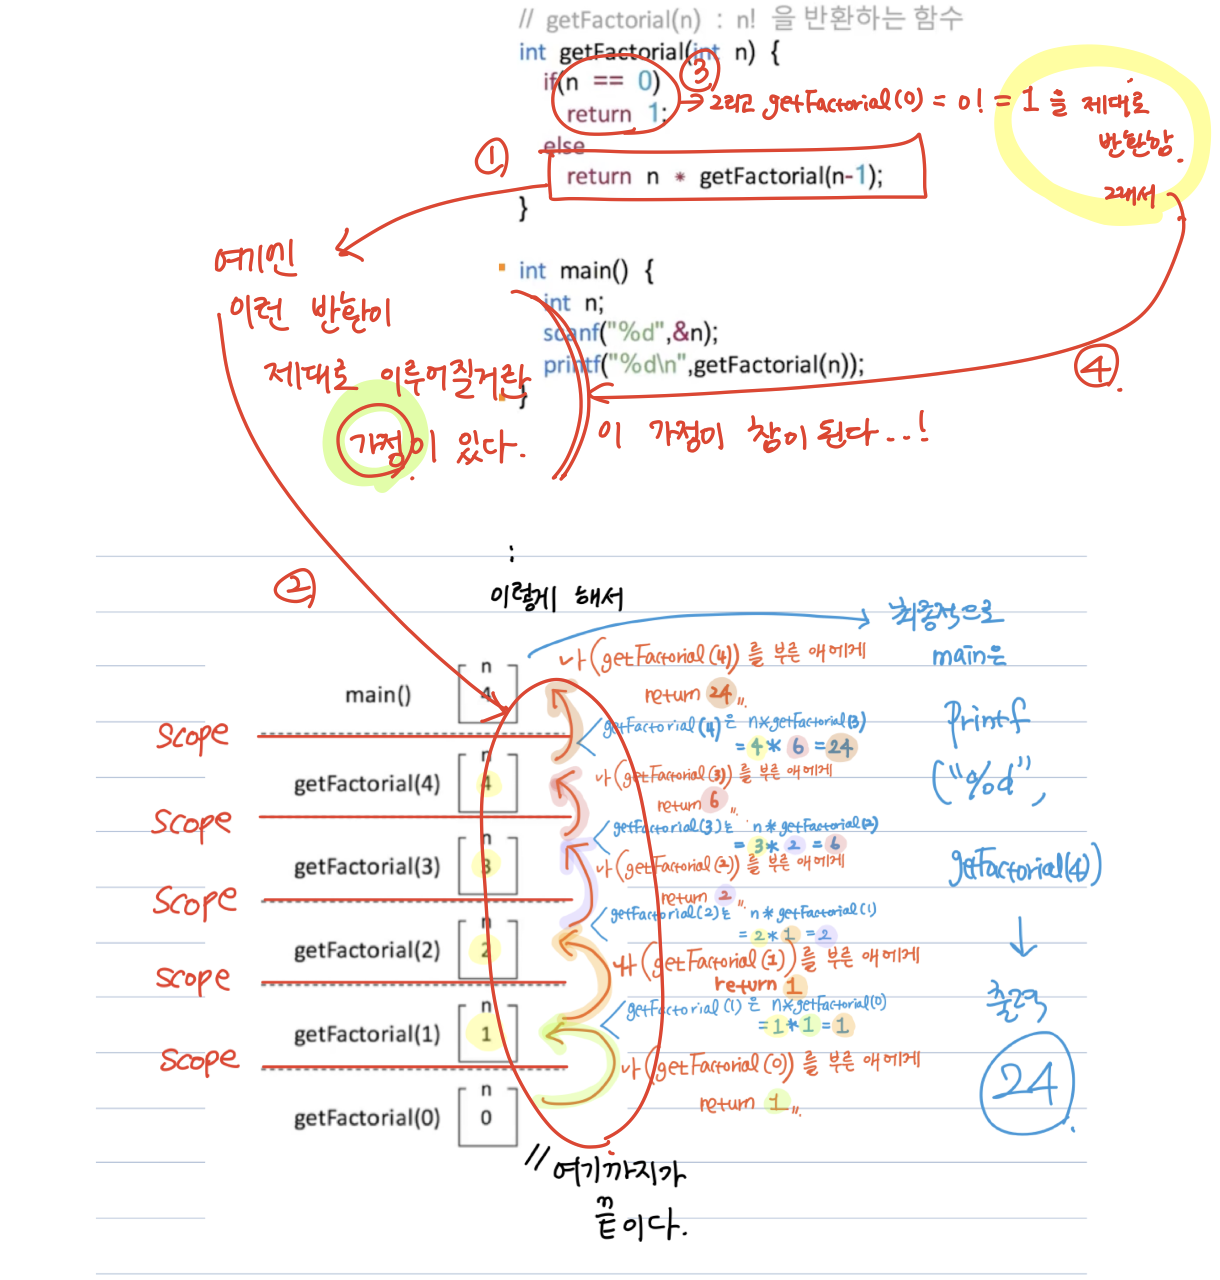 // getFactorial(n) : n! 을 반환하는 함수
int getFactorial(int n) {
if(n == 0)
③
return 1;
→ 그리고 getFactorial(0) = 0! = 1 을 제대로
반환함.
그래서
else
①
return n * getFactorial(n-1);
}
여기엔
이런 반환이
제대로 이루어질거란
가정이 있다.
int main() {
int n;
scanf("%d",&n);
printf("%d\n",getFactorial(n));
}
④
이 가정이 참이 된다...!
②
:
이렇게 해서
최종적으로
main은
printf
("%d",
getFactorial(4))
↓
출력
24
main()
n
4
나(getFactorial(4))를 부른 애에게
return 24
scope
getFactorial(4)은 n*getFactorial(3)
= 4 * 6 = 24
getFactorial(4)
n
4
나(getFactorial(3))를 부른 애에게
return 6
scope
getFactorial(3)는 n*getFactorial(2)
= 3 * 2 = 6
getFactorial(3)
n
3
나(getFactorial(2))를 부른 애에게
return 2
scope
getFactorial(2)는 n*getFactorial(1)
= 2 * 1 = 2
getFactorial(2)
n
2
나(getFactorial(1))를 부른 애에게
return 1
scope
getFactorial(1)은 n*getFactorial(0)
= 1 * 1 = 1
getFactorial(1)
n
1
나(getFactorial(0))를 부른 애에게
return 1
scope
getFactorial(0)
n
0
// 여기까지가
끝이다.